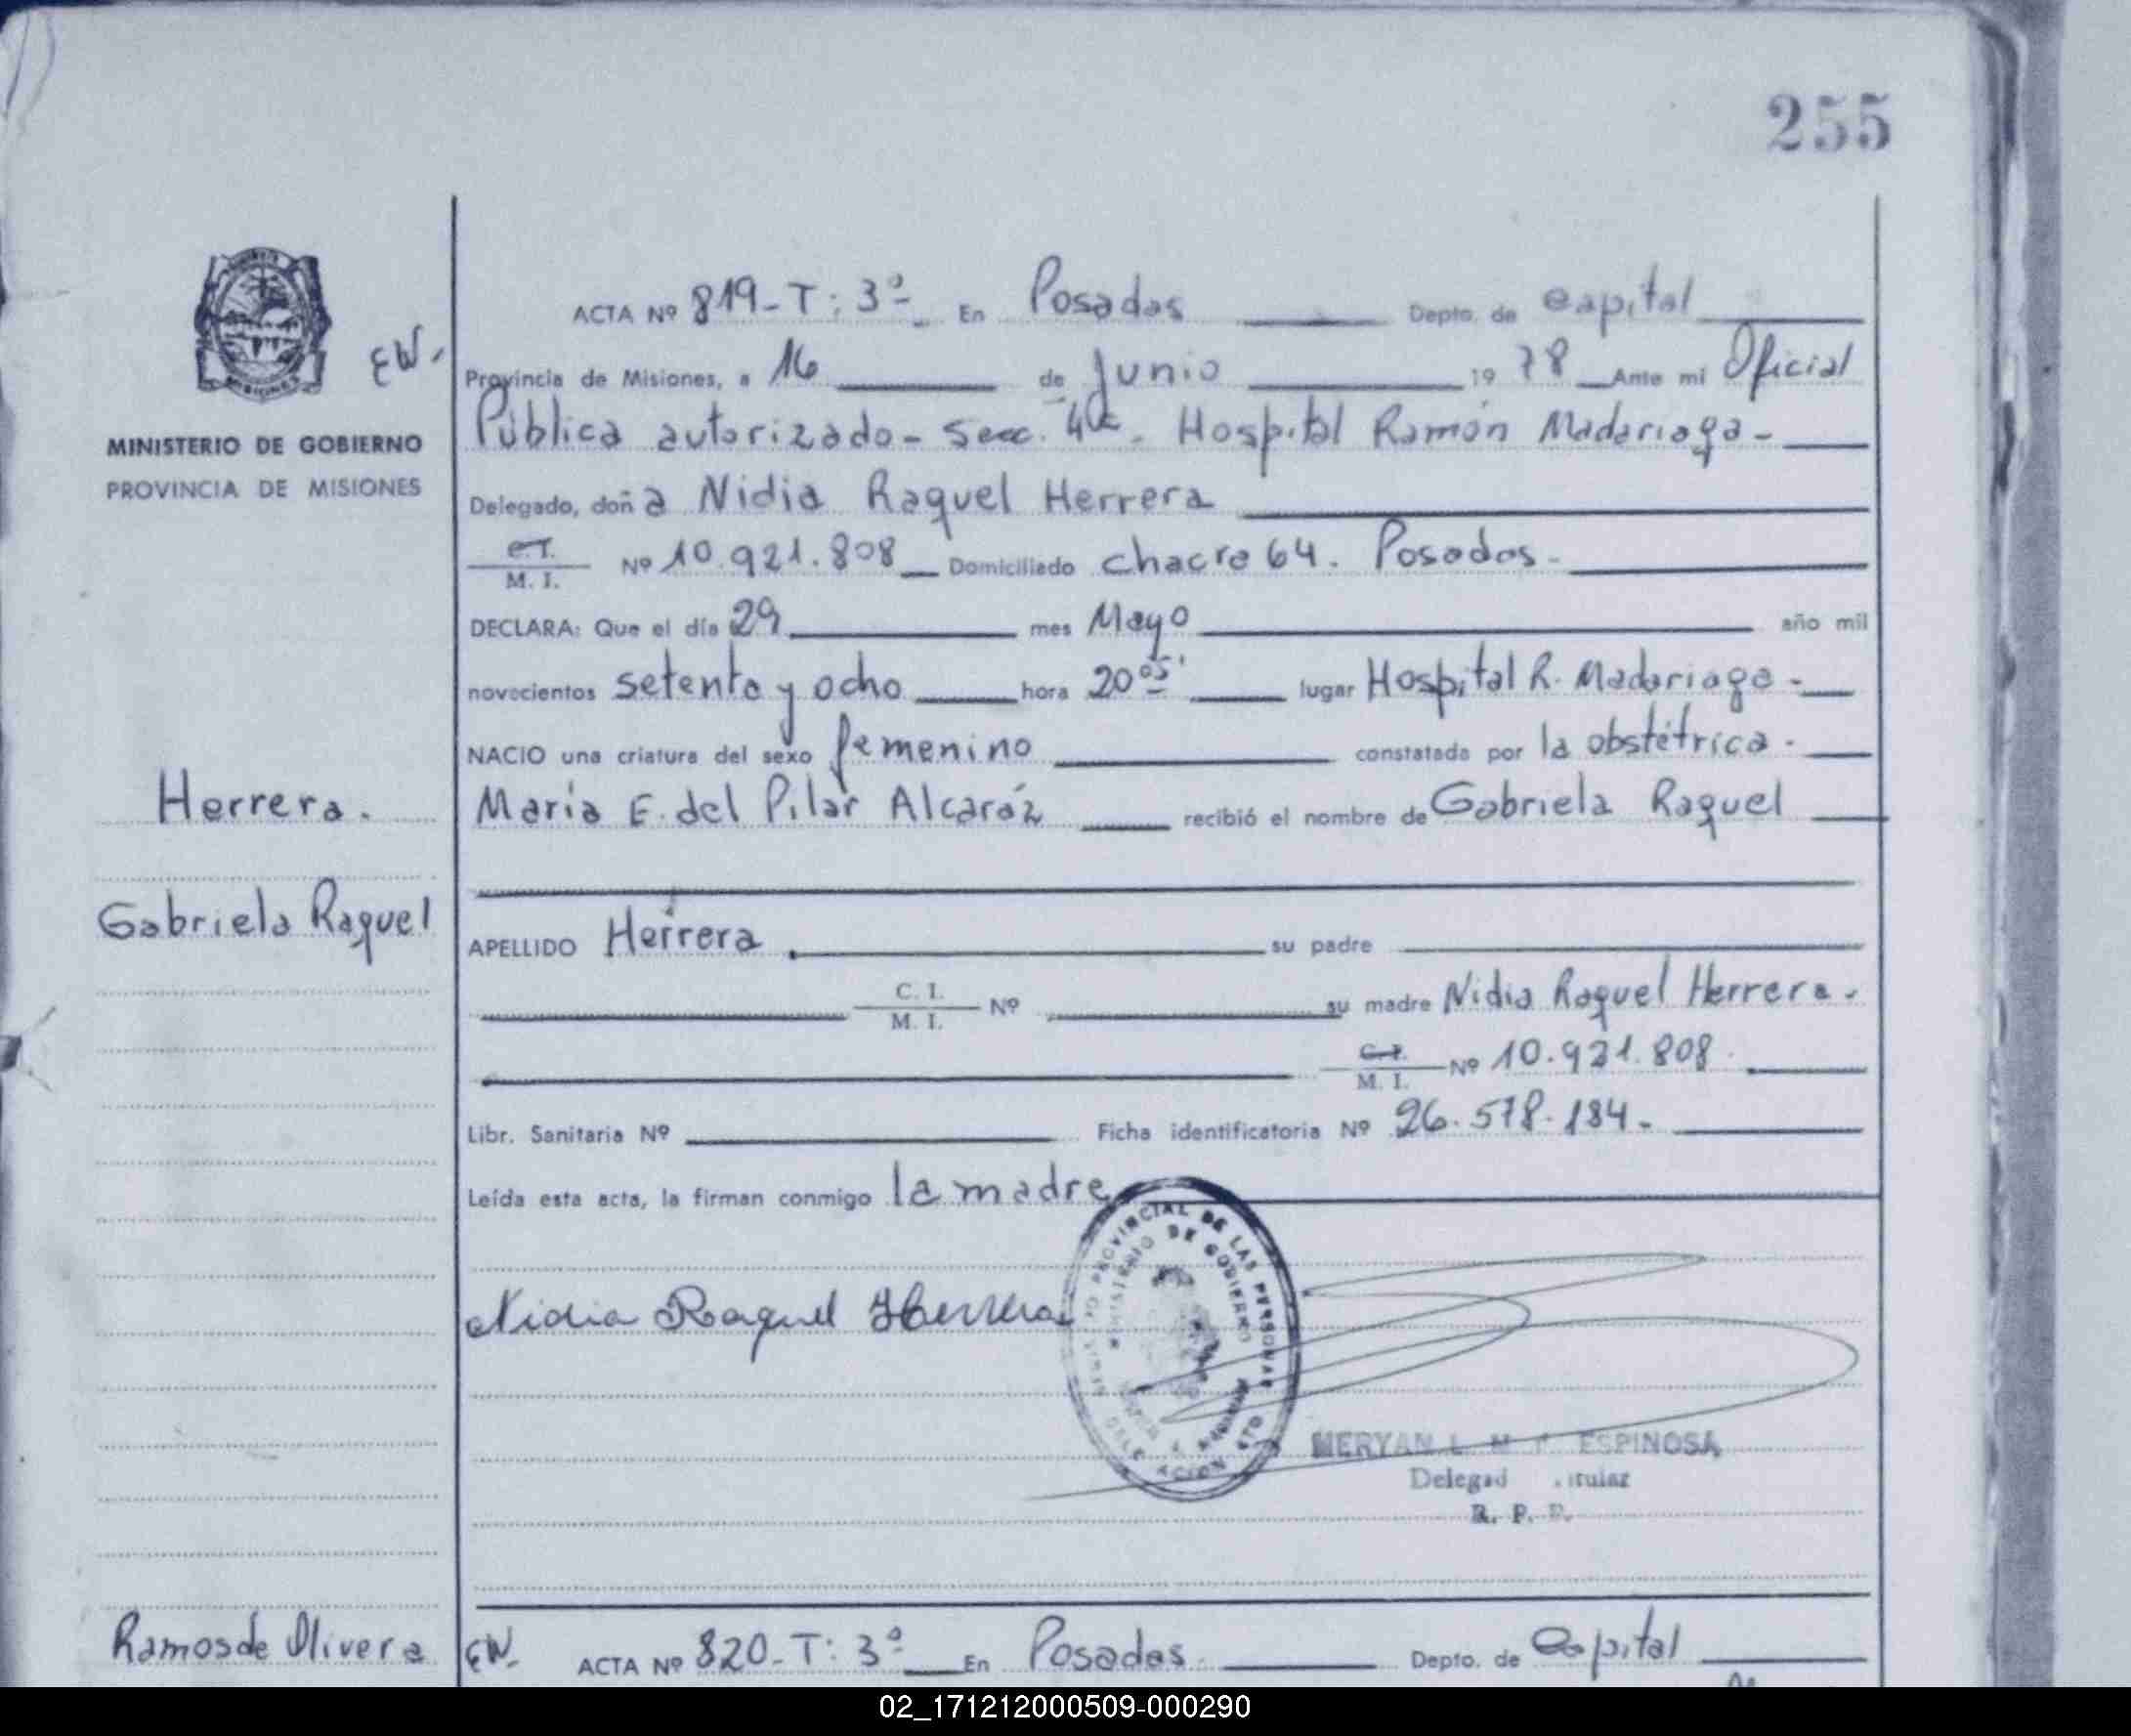 255
MINISTERIO DE GOBIERNO
PROVINCIA DE MISIONES
EW.
ACTA Nº 819-T: 3º- En Posadas Depto. de Capital
Provincia de Misiones, a 16 de Junio 1978 Ante mi Oficial
Pública autorizado- Secc. 4ta. Hospital Ramón Madariaga-
Delegado, doña Nidia Raquel Herrera
C.I.
M. I. Nº 10.921.808 Domiciliado chacra 64. Posadas-
DECLARA: Que el día 29 mes Mayo año mil
novecientos setenta y ocho hora 20 05' lugar Hospital R. Madariaga-
NACIO una criatura del sexo femenino constatada por la obstétrica-
Herrera.
María E. del Pilar Alcaráz recibió el nombre de Gabriela Raquel
Gabriela Raquel
APELLIDO Herrera. su padre
C. I.
M. I. Nº su madre Nidia Raquel Herrera.
C.I.
M. I. Nº 10.921.808
Libr. Sanitaria Nº Ficha identificatoria Nº 26.578.184-
Leída esta acta, la firman conmigo la madre
PROVINCIAL DE LAS PERSONAS
MINISTERIO DE GOBIERNO
Nidia Raquel Herrera
MERYAN L. ESPINOSA
R. P. P.
Ramos de Olivera
EW. ACTA Nº 820-T: 3º En Posadas Depto. de Capital
02_171212000509-000290